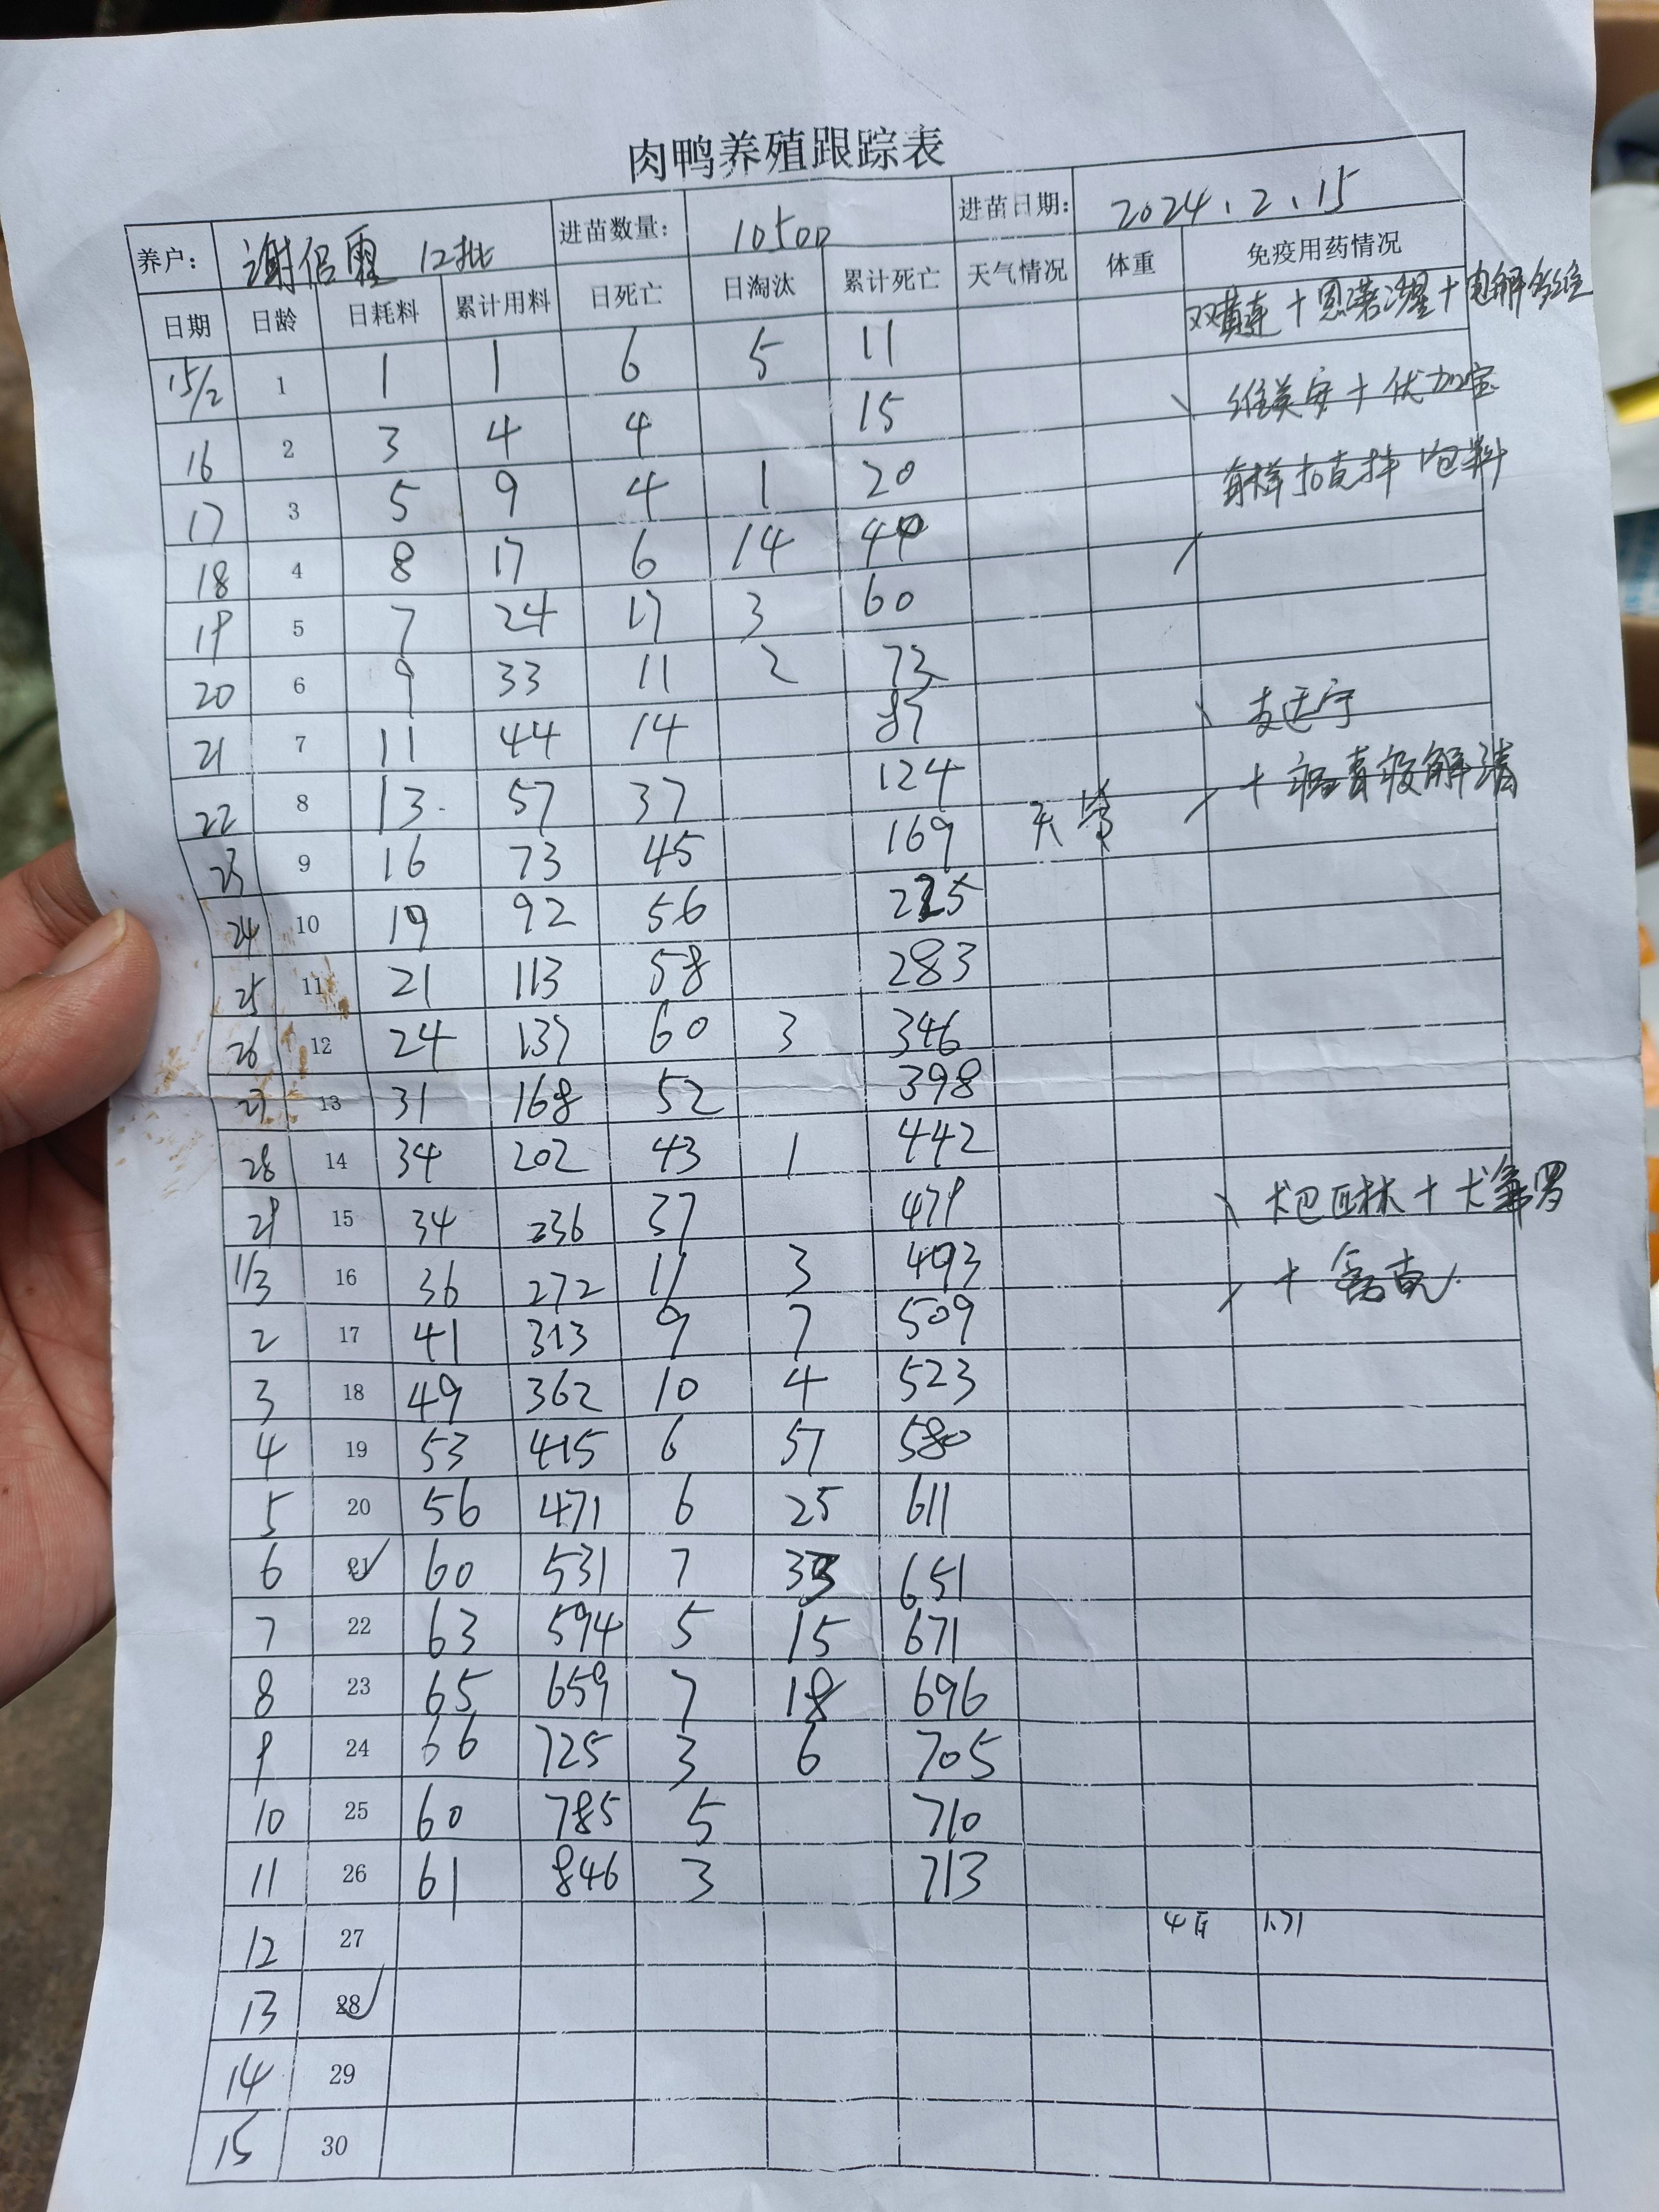 肉鸭养殖跟踪表
养户: 谢侣 12批 进苗数量: 10500 进苗日期: 2024.2.15
日期 日龄 日耗料 累计用料 日死亡 日淘汰 累计死亡 天气情况 体重 免疫用药情况
双黄连+恩诺沙星+电解多维
15/2 1 1 1 6 5 11
16 2 3 4 4 15 维美安+优加宝
17 3 5 9 4 1 20 拌1包料
18 4 8 17 6 14 40
19 5 7 24 17 3 60
20 6 9 33 11 2 73
21 7 11 44 14 87 支达宁
22 8 13 57 37 124 +解清
23 9 16 73 45 169 天
24 10 19 92 56 225
25 11 21 113 58 283
26 12 24 137 60 3 346
27 13 31 168 52 398
28 14 34 202 43 1 442
29 15 34 236 37 479 犬巴匹林+犬
1/3 16 36 272 11 3 493 +
2 17 41 313 9 7 509
3 18 49 362 10 4 523
4 19 53 415 6 51 580
5 20 56 471 6 25 611
6 21 60 531 7 33 651
7 22 63 594 5 15 671
8 23 65 659 7 18 696
9 24 66 725 3 6 705
10 25 60 785 5 710
11 26 61 846 3 713
12 27 1.71
13 28
14 29
15 30